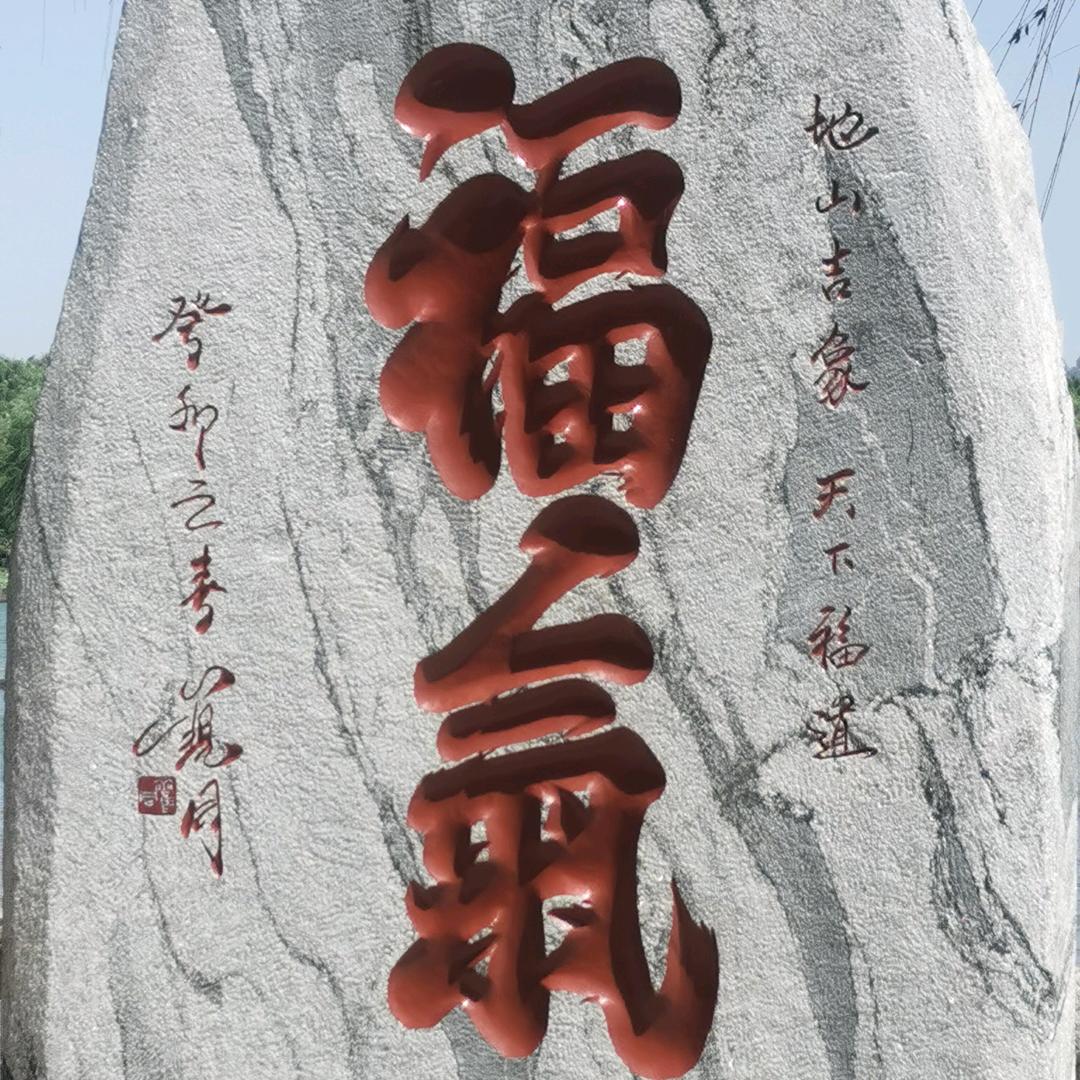 地山吉象天下福道
福氣
癸卯之春